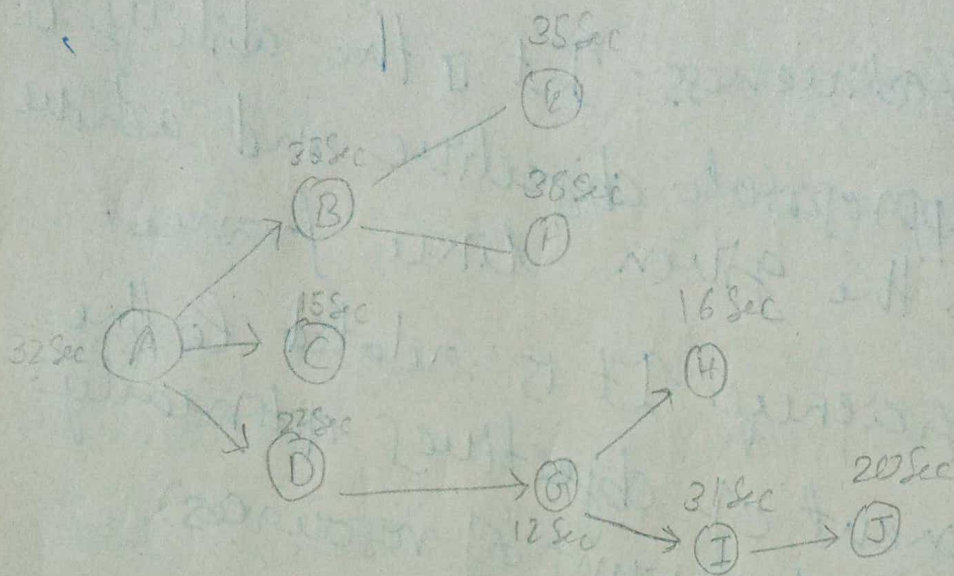 35Sec
E
B
36Sec
F
15Sec
C
32Sec
A
16 Sec
H
22Sec
D
G
12 Sec
31Sec
I
20Sec
J